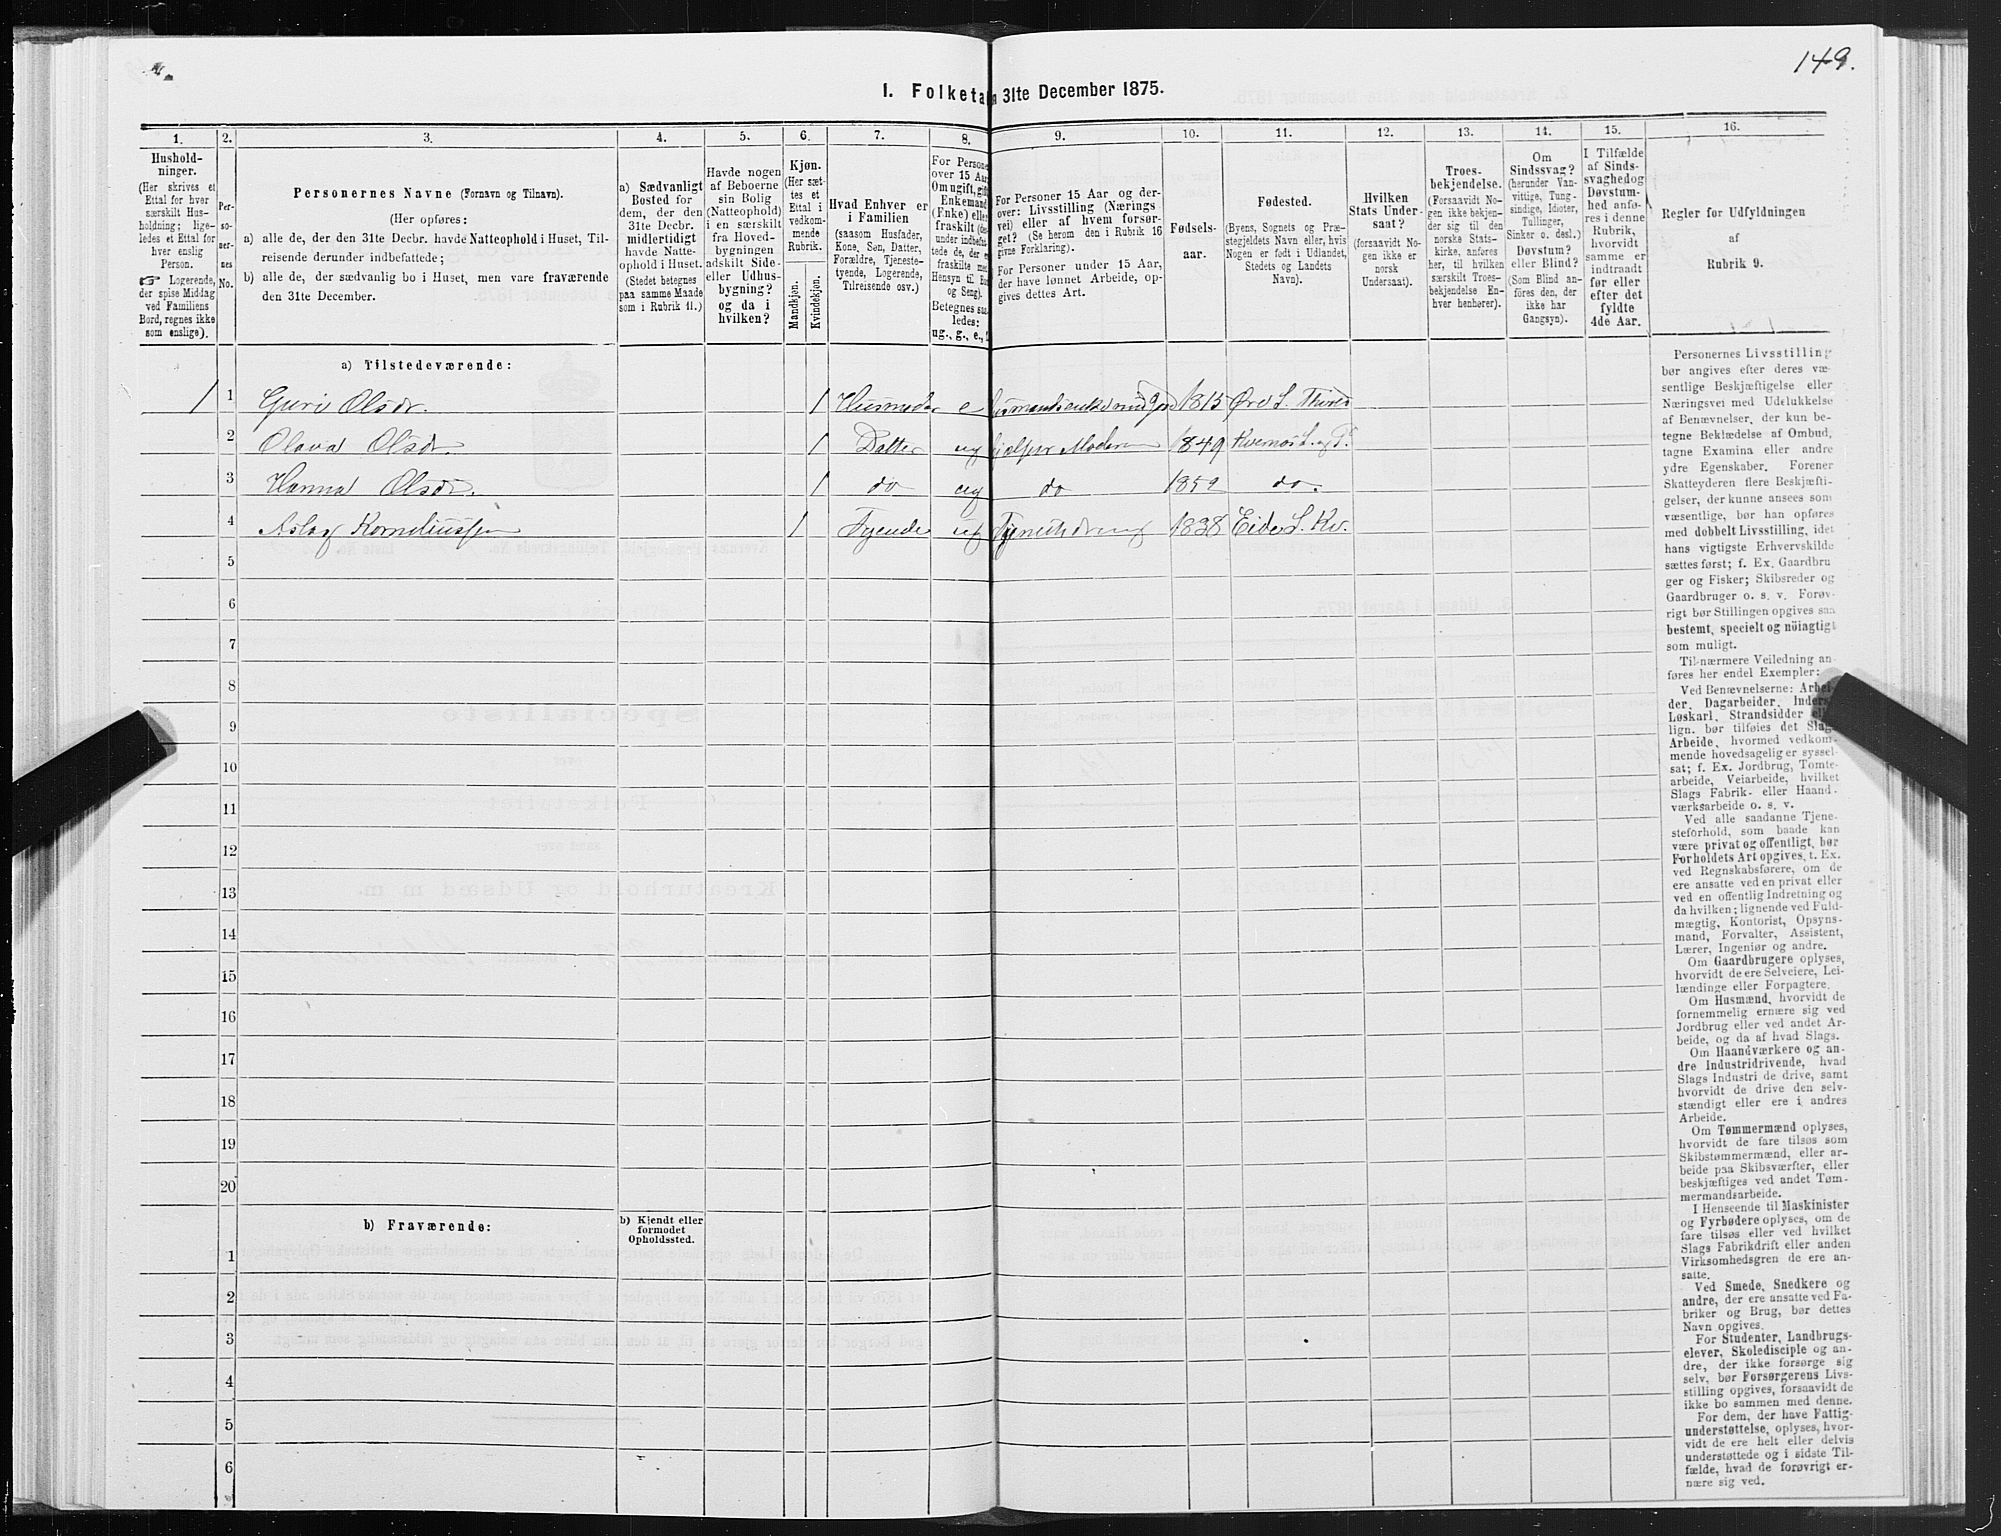 149.
I. Folketa 31te December 1875.
1. 2. 3. 4. 5. 6. 7. 8. 9. 10. 11. 12. 13. 14. 15. 16.
Hushold-
ninger.
(Her skrives et
Ettal for hver
særskilt Hus-
holdning; lige-
ledes et Ettal for
hver enslig
Person.
☞ Logerende,
der spise Middag
ved Familiens
Bord, regnes ikke
som enslige).
Per-
so-
ner-
nes
No.
Personernes Navne (Fornavn og Tilnavn).
(Her opføres:
a) alle de, der den 31te Decbr. havde Natteophold i Huset, Til-
reisende derunder indbefattede;
b) alle de, der sædvanlig bo i Huset, men vare fraværende
den 31te December.
a) Sædvanligt
Bosted for
dem, der den
31te Decbr.
midlertidigt
havde Natte-
ophold i Huset.
(Stedet betegnes
paa samme Maade
som i Rubrik 11.)
Havde nogen
af Beboerne
sin Bolig
(Natteophold)
i en særskilt
fra Hoved-
bygningen
adskilt Side-
eller Udhus-
bygning?
og da i
hvilken?
Kjøn.
(Her sæt-
tes et
Ettal i
vedkom-
mende
Rubrik.
Mandkjøn.
Kvindekjøn.
Hvad Enhver er
i Familien
(saasom Husfader,
Kone, Søn, Datter,
Forældre, Tjeneste-
tyende, Logerende,
Tilreisende osv.)
For Persone
over 15 Aar
Om ugift, gift
Enkemand
(Enke) elle
fraskilt (de
under indbefat-
tede de, der e
fraskilte me
Hensyn til Bo
og Seng).
Betegnes saa
ledes:
ug., g., e.,
For Personer 15 Aar og der-
over: Livsstilling (Nærings
vei) eller af hvem forsør-
get? (Se herom den i Rubrik 16
givne Forklaring).
For Personer under 15 Aar,
der have lønnet Arbeide, op-
gives dettes Art.
Fødsels-
aar.
Fødested.
(Byens, Sognets og Præ-
stegjeldets Navn eller, hvis
Nogen er født i Udlandet,
Stedets og Landets
Navn).
Hvilken
Stats Under-
saat?
(forsaavidt No-
gen ikke er
norsk
Undersaat).
Troes-
bekjendelse.
(Forsaavidt No-
gen ikke bekjen-
der sig til den
norske Stats-
kirke, anføres
her, til hvilken
særskilt Troes-
bekjendelse En-
hver henhører).
Om
Sindssvag?
(herunder Van-
vittige, Tung-
sindige, Idioter,
Tullinger,
Sinker o. desl.)
Døvstum?
eller Blind?
(Som Blind an-
føres den, der
ikke har
Gangsyn).
I Tilfælde
af Sinds-
svaghed og
Døvstum-
hed anfø-
res i denne
Rubrik,
hvorvidt
samme er
indtraadt
før eller
efter det
fyldte
4de Aar.
Regler for Udfyldningen
af
Rubrik 9.
a) Tilstedeværende:
1 1 Guri Olsdr. 1 Husmoder e 1815 Øre S.
2 Olava Olsdr. 1 Datter ug hjelper Moderen 1849 Kvernes S. og P.
3 Hanna Olsdr. 1 do ug do 1852 do.
4 Aslag Korneliussen 1 Tyende ug 1838 Eide S. Kv.
5
6
7
8
9
10
11
12
13
14
15
16
17
18
19
20
b) Fraværende:
b) Kjendt eller
formodet
Opholdssted.
1
2
3
4
5
6
Personernes Livsstilling
bør angives efter deres væ-
sentlige Beskjæftigelse eller
Næringsvei med Udelukkelse
af Benævnelser, der kun be-
tegne Beklædelse af Ombud,
tagne Examina eller andre
ydre Egenskaber. Forener
Skatteyderen flere Beskjæfti-
gelser, der kunne ansees som
væsentlige, bør han opføres
med dobbelt Livsstilling, idet
hans vigtigste Erhvervskilde
sættes først; f. Ex. Gaardbru
ger og Fisker; Skibsreder og
Gaardbruger o. s. v. Forøv-
rigt bør Stillingen opgives saa
bestemt, specielt og nöiagtigt
som muligt.
Til nærmere Veiledning an-
føres her endel Exempler:
Ved Benævnelserne: Arbei-
der, Dagarbeider, Inderst,
Løskarl, Strandsidder el
lign. bør tilføies det Slags
Arbeide, hvormed vedkom-
mende hovedsagelig er syssel-
sat; f. Ex. Jordbrug, Tomte-
arbeide, Veiarbeide, hvilket
Slags Fabrik- eller Haand-
værksarbeide o. s. v.
Ved alle saadanne Tjene-
steforhold, som baade kan
være privat og offentligt, bør
Forholdets Art opgives, t. Ex.
ved Regnskabsførere, om de
ere ansatte ved en privat eller
ved en offentlig Indretning og
da hvilken; lignende ved Fuld-
mægtig, Kontorist, Opsyns-
mand, Forvalter, Assistent,
Lærer, Ingeniør og andre.
Om Gaardbrugere oplyses,
hvorvidt de ere Selveiere, Lei-
lændinge eller Forpagtere.
Om Husmænd, hvorvidt de
fornemmelig ernære sig ved
Jordbrug eller ved andet Ar-
beide, og da af hvad Slags.
Om Haandværkere og an-
dre Industridrivende, hvad
Slags Industri de drive, samt
hvorvidt de drive den selv-
stændigt eller ere i andres
Arbeide.
Om Tømmermænd oplyses,
hvorvidt de fare tilsøs som
Skibstømmermænd, eller ar-
beide paa Skibsværfter, eller
beskjæftiges ved andet Tøm-
mermandsarbeide.
I Henseende til Maskinister
og Fyrbødere oplyses, om de
fare tilsøs eller ved hvilket
Slags Fabrikdrift eller anden
Virksomhedsgren de ere an-
satte.
Ved Smede, Snedkere og
andre, der ere ansatte ved Fa-
briker og Brug, bør dettes
Navn opgives.
For Studenter, Landbrugs-
elever, Skoledisciple og an-
dre, der ikke forsørge sig
selv, bør Forsørgerens Livs-
stilling opgives, forsaavidt de
ikke bo sammen med denne.
For dem, der have Fattig-
understøttelse, oplyses, hvor-
vidt de ere helt eller delvis
understøttede og i sidste Til-
fælde, hvad de forøvrigt er-
nære sig ved.